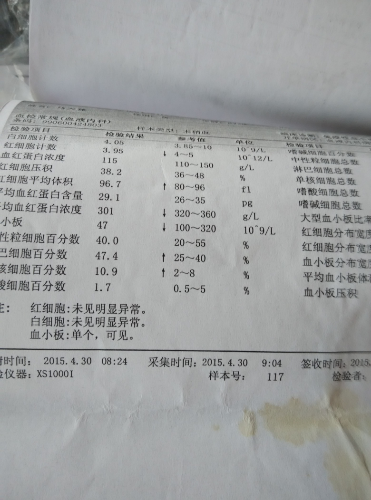 血检常规(血液内科)
条码: 990600424801 样本类型: 末梢血
检验项目 检验结果 参考值 单位 检验项目
白细胞计数 4.05 3.85~10 10^9/L 嗜碱细胞百分数
红细胞计数 3.95 ↓ 4~5 10^12/L 中性粒细胞总数
血红蛋白浓度 115 110~150 g/L 淋巴细胞总数
红细胞压积 38.2 36~48 % 单核细胞总数
红细胞平均体积 96.7 ↑ 80~96 fl 嗜酸细胞总数
平均血红蛋白含量 29.1 26~35 pg 嗜碱细胞总数
平均血红蛋白浓度 301 ↓ 320~360 g/L 大型血小板比率
小板 47 ↓ 100~320 10^9/L 红细胞分布宽度
性粒细胞百分数 40.0 20~55 % 红细胞分布宽
巴细胞百分数 47.4 ↑ 25~40 % 血小板分布宽
核细胞百分数 10.9 ↑ 2~8 % 平均血小板体
酸细胞百分数 1.7 0.5~5 % 血小板压积
注: 红细胞:未见明显异常。
白细胞:未见明显异常。
血小板:单个,可见。
时间: 2015.4.30 08:24 采集时间: 2015.4.30 9:04 签收时间: 2015
验仪器: XS1000I 样本号: 117 检验者: